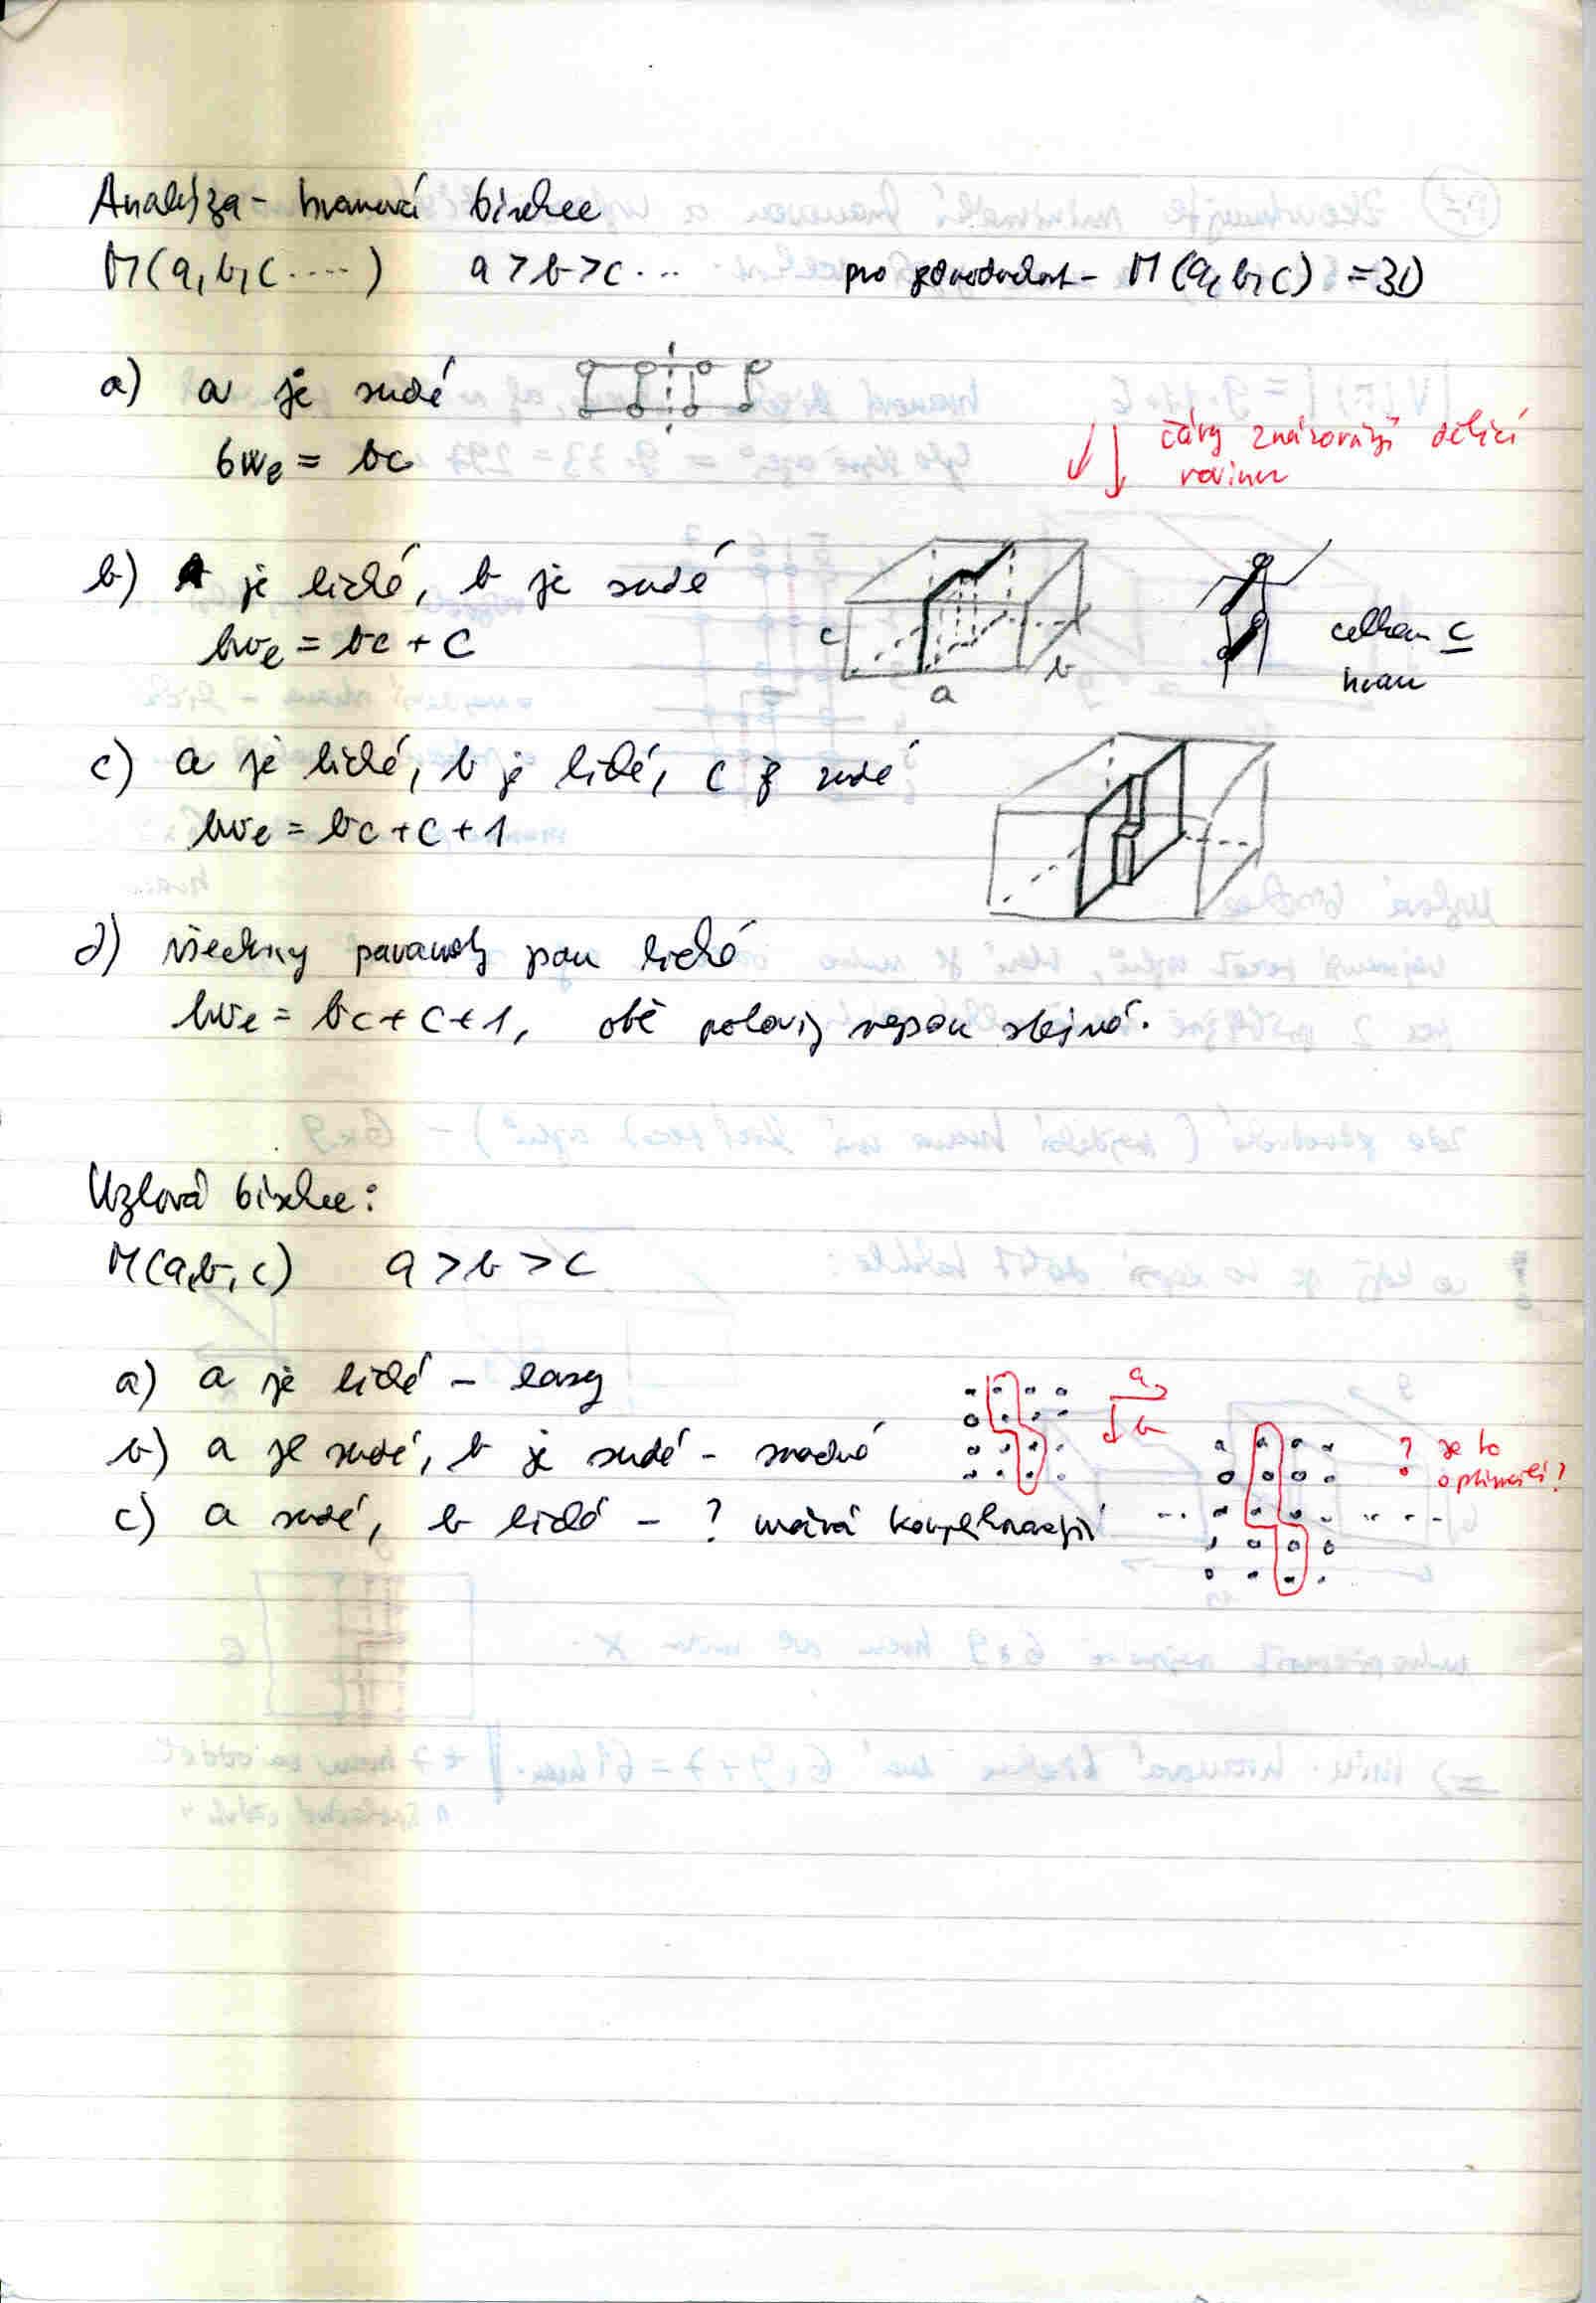 Analýza - hranová bisekce
M(a,b,c ....) a > b > c ... pro jednoduchost - M(a,b,c) = 3D
a) a je sudé
bwe = bc
čáry znázorňují dělící
rovinu
b) A je liché, b je sudé
bwe = bc + c
c
a
b
celkem c
hran
c) a je liché, b je liché, c je sudé
bwe = bc + c + 1
d) všechny parametry jsou liché
bwe = bc + c + 1, obě poloviny nejsou stejné.
Uzlová bisekce:
M(a,b,c) a > b > c
a) a je liché - easy
b) a je sudé, b je sudé - snadné
a
b
c) a sudé, b liché - ?
? je to
optimální?